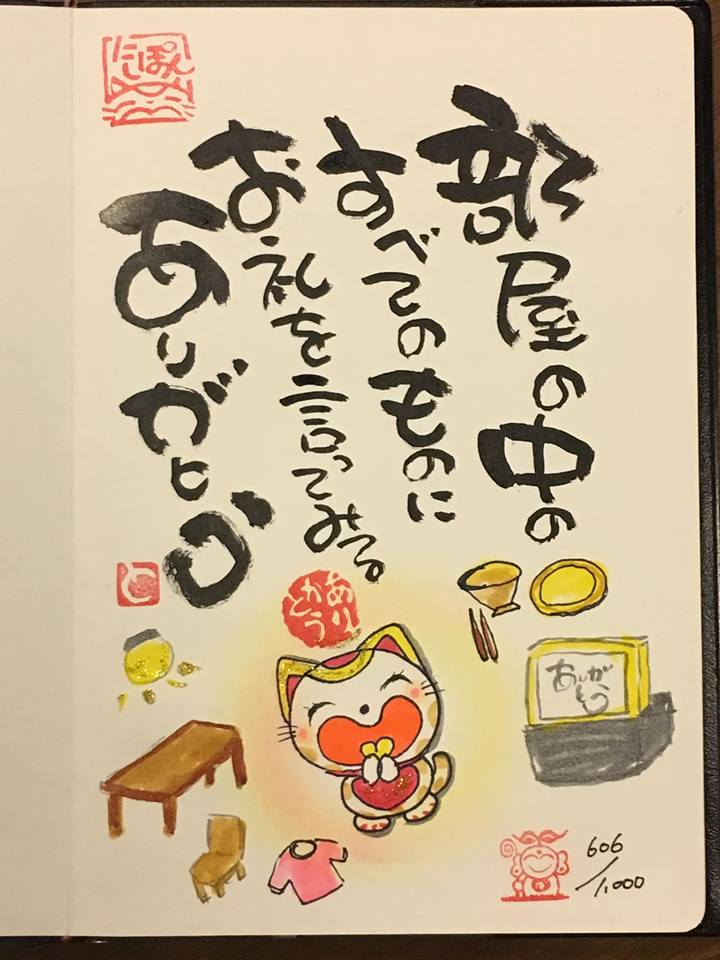 にっぽん
部屋の中の
すべてのものに
お礼を言ってみる
ありがとう
と
ありがとう
ありがとう
606/1,000